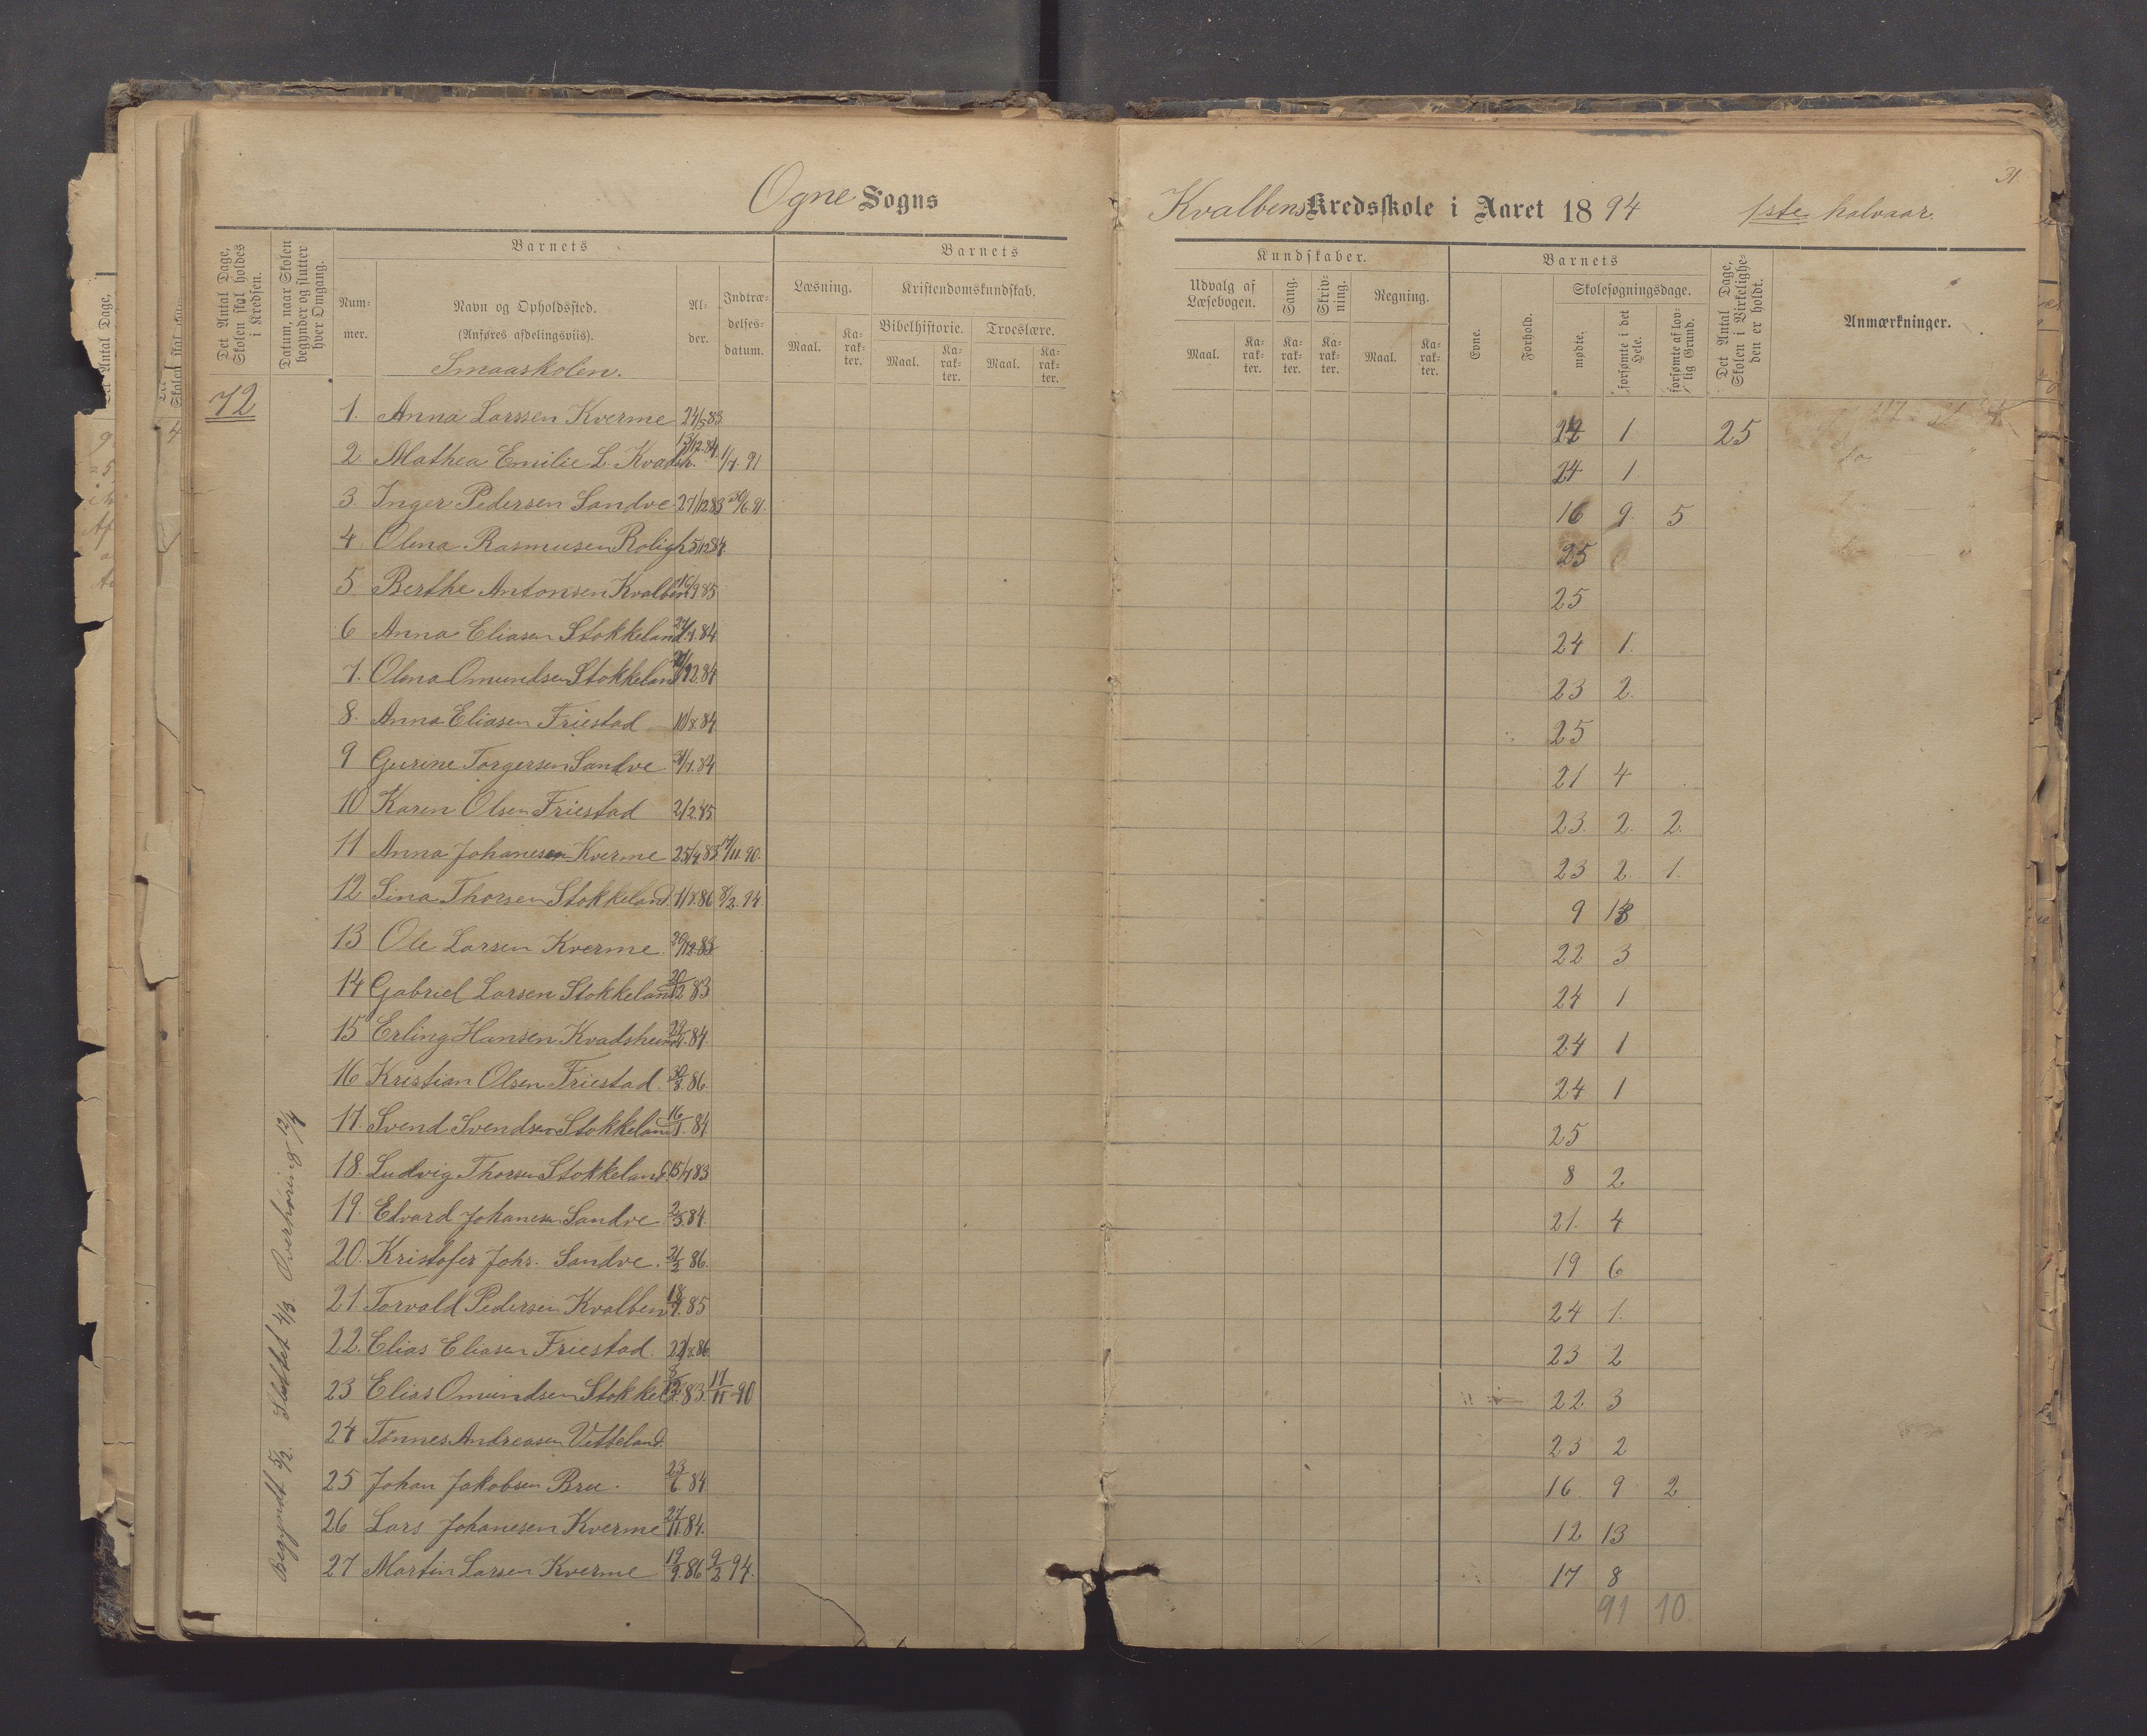 31
Ogne Sogns Kvalbens Kredsskole i Aaret 1894 1ste halvaar.
Det Antal Dage, Skolen skal holdes i Kredsen.
Datum, naar Skolen begynder og slutter hver Omgang.
Barnets
Num-mer.
Navn og Opholdssted.
(Anføres afdelingsviis).
Smaaskolen.
Al-der.
Indtræ-delses-datum.
Barnets
Læsning.
Kristendomskundskab.
Bibelhistorie.
Troeslære.
Maal. Ka-rak-ter. Maal. Ka-rak-ter. Maal. Ka-rak-ter.
Kundskaber.
Udvalg af Læsebogen.
Sang.
Skriv-ning.
Regning.
Maal. Ka-rak-ter. Ka-rak-ter. Ka-rak-ter. Maal. Ka-rak-ter.
Barnets
Evne.
Forhold.
Skolesøgningsdage.
mødte.
forsømte i det Hele.
forsømte af lov-lig Grund.
Det Antal Dage, Skolen i Virkelighe-den er holdt.
Anmærkninger.
72
Begyndt 5/2. Sluttet 4/3. Overhøring 12/4
1. Anna Larssen Kverme 24/5 83 24 1 25
2. Mathea Emilie L. Kvadsh. 13/12.84. 1/7.91 24 1
3. Inger Pedersen Sandve 27/12 83 30/6.91. 16 9 5
4 Olena Rasmusen Roligh. 5/12 84. 25
5 Berthe Antonsen Kvalben 16/9 85 25
6 Anna Eliasen Stokkeland 84 24 1.
7. Olena Omundsen Stokkeland 12.84 23 2.
8. Anna Eliasen Friestad 10/8.84 25
9 Gurine Torgersen Sandve 84 21 4
10 Karen Olsen Friestad 2/2.85 23. 2. 2.
11 Anna Johanesen Kverme 25/4.83 17/11.90. 23 2. 1.
12 Sina Thorsen Stokkeland 1/8.86 8/2.94 9 13
13 Ole Larsen Kverme. 29/12.83 22 3
14 Gabriel Larsen Stokkeland 20/12 83 24 1
15 Erling Hansen Kvadsheim 84. 24 1
16 Kristian Olsen Friestad. 30/8.86. 24 1
17. Svend Svendsen Stokkeland 16/1. 84 25
18. Ludvig Thorsen Stokkeland 15/4 83 8 2
19. Edvard Johanesen Sandve. 2/5.84. 21. 4
20. Kristofer Johs. Sandve. 21/2 86. 19 6
21. Torvald Pedersen Kvalben 85 24 1.
22. Elias Eliasen Friestad. 22/8.86 23 2
23 Elias Omundsen Stokkel. 83. 17/11-90 22 3
24 Tønnes Andreasen Vetteland. 23 2
25 Johan Jakobsen Bru. 23/6.84 16 9 2
26 Lars Johanesen Kverme 27/11 84. 12 13
27 Martin Larsen Kverme 19/9.86 9/2 94. 17 8
91 10